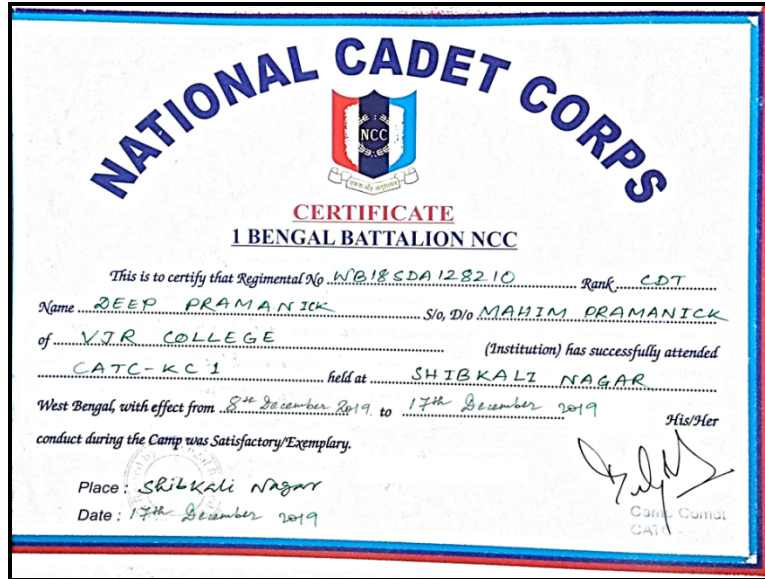 NATIONAL CADET CORPS
NCC
एकता और अनुशासन
CERTIFICATE
1 BENGAL BATTALION NCC
This is to certify that Regimental No WB18SDA128210 Rank CDT
Name DEEP PRAMANICK S/o, D/o MAHIM PRAMANICK
of VJR COLLEGE (Institution) has successfully attended
CATC-KC 1 held at SHIBKALI NAGAR
West Bengal, with effect from 8th December 2019. to 17th December 2019 His/Her
conduct during the Camp was Satisfactory/Exemplary.
Place : Shibkali Nagar
Date : 17th December 2019
Camp Comdt
CATC